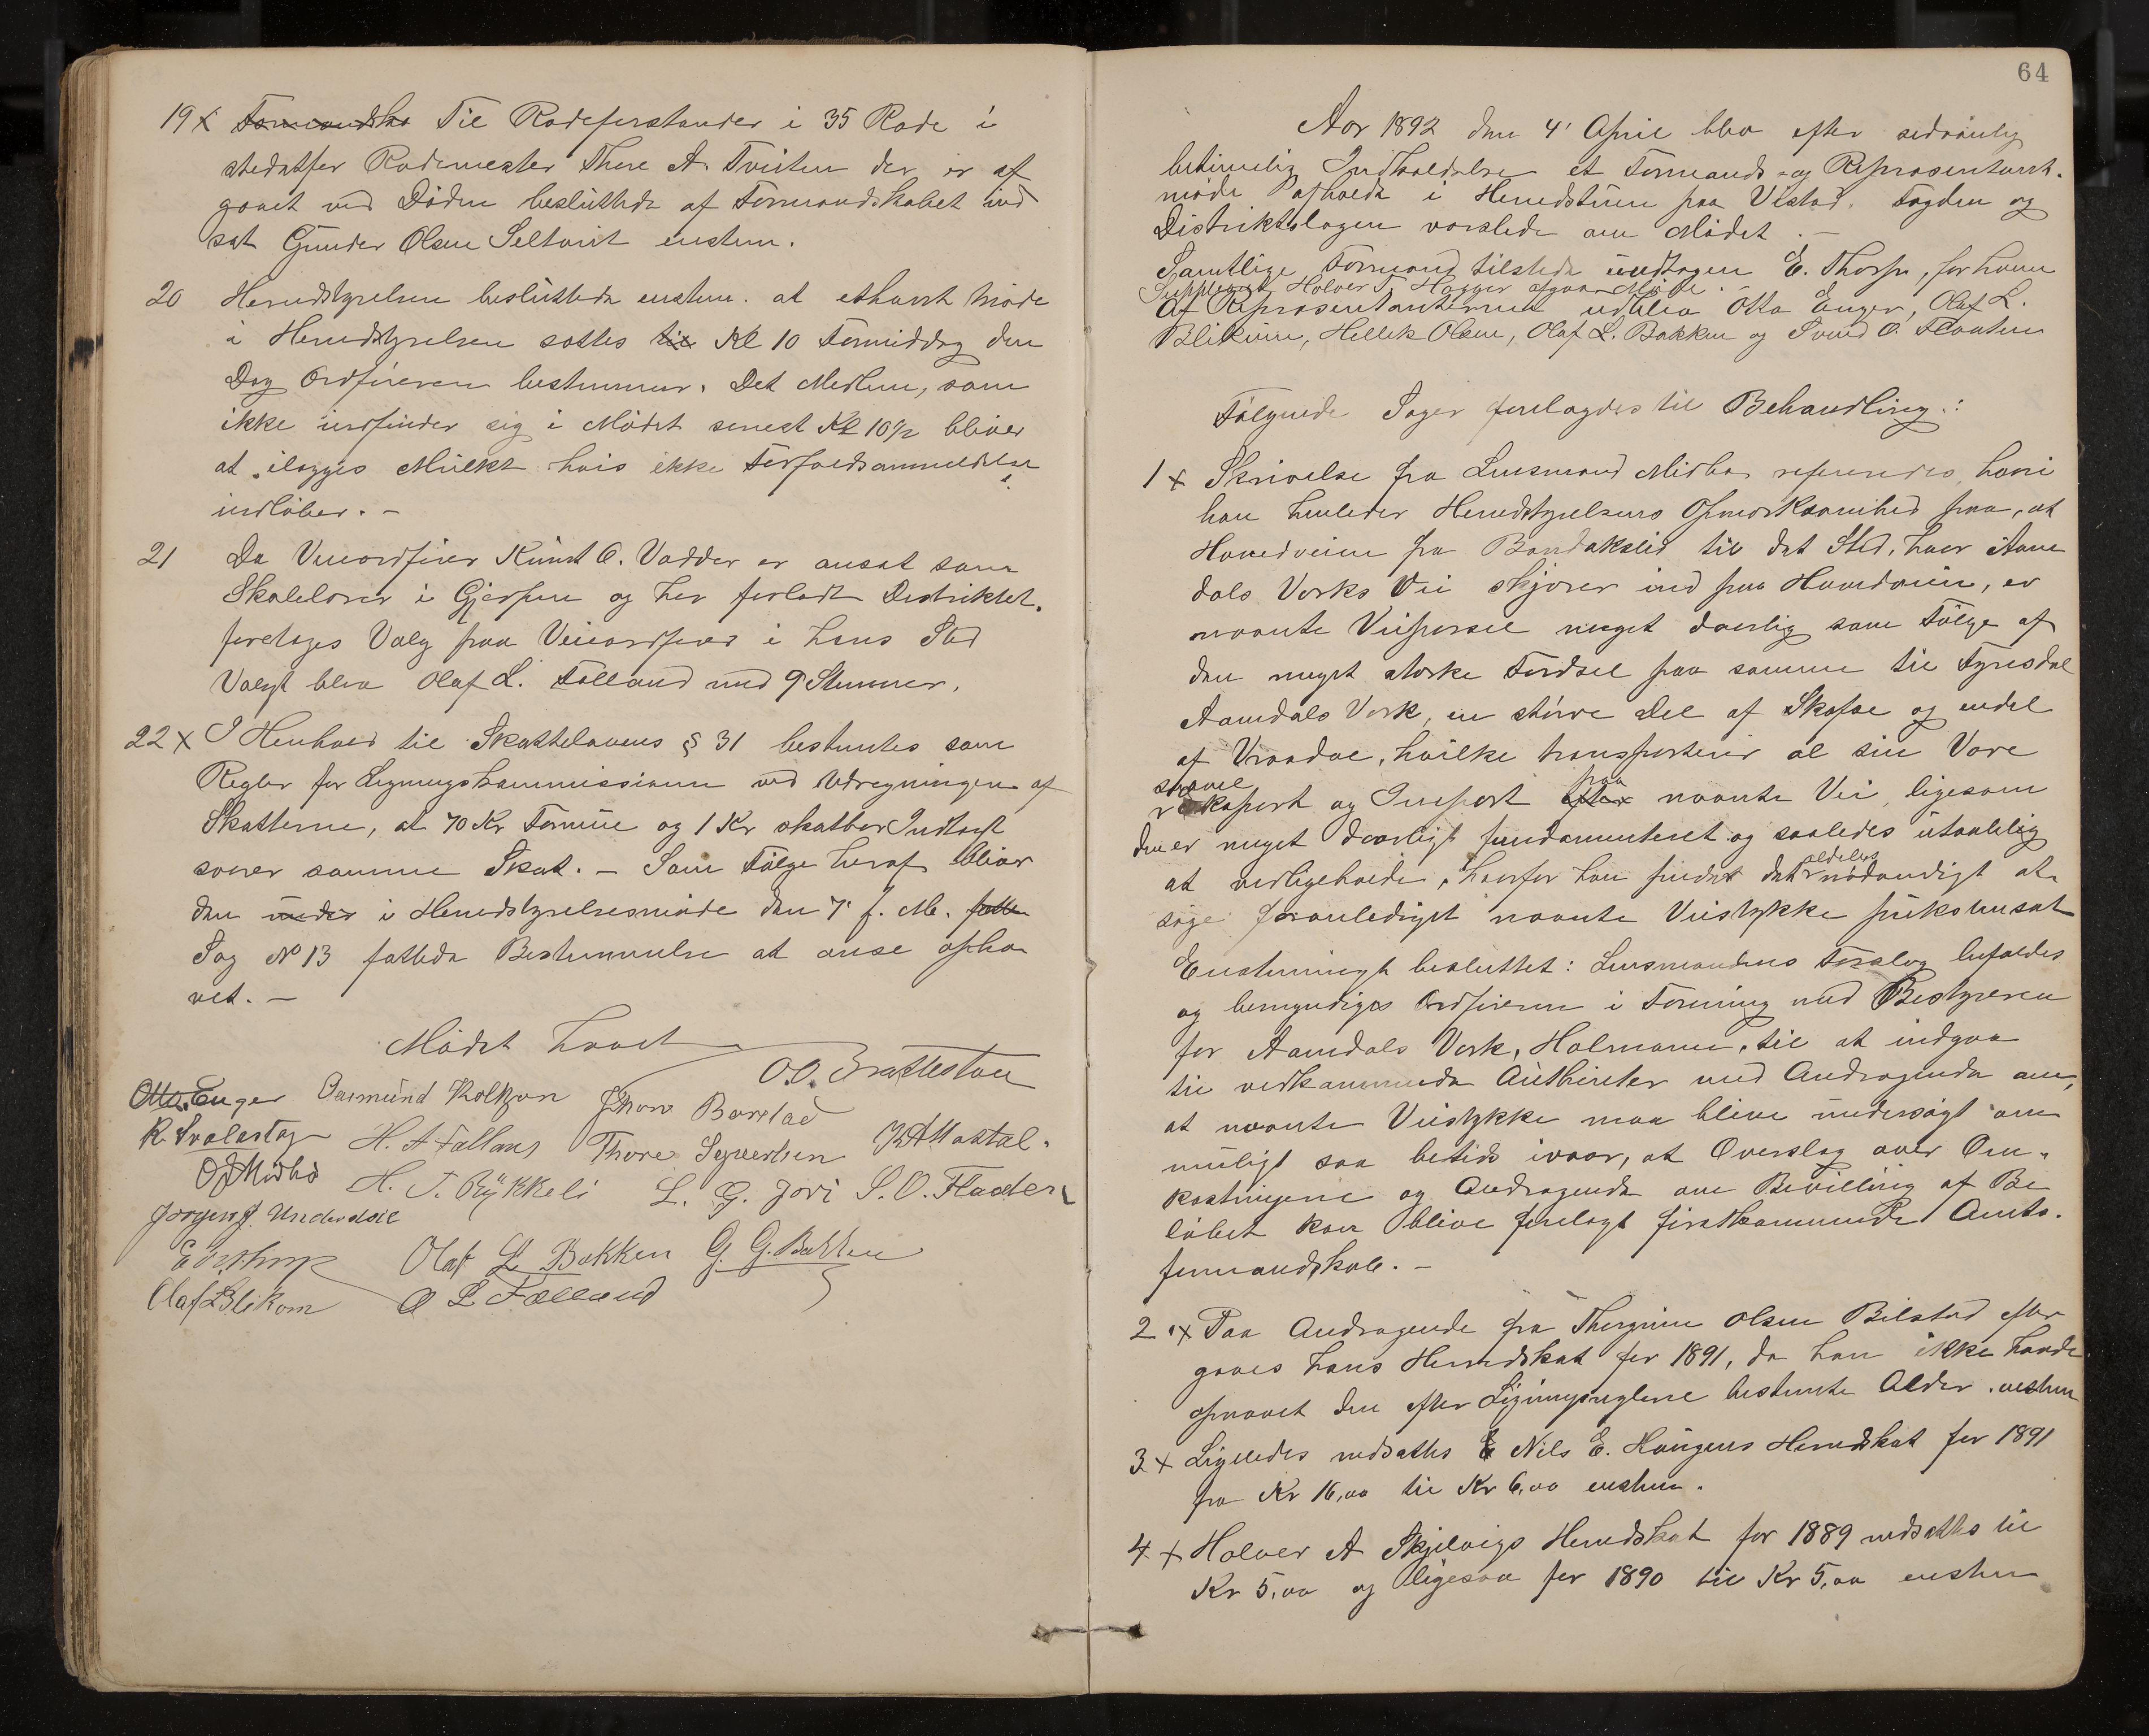 19 x Formandska Til Rodeforstander i 35 Rode i
stedetfor Rodemester Thore A. Tveiten der er af
gaaet ved Døden besluttede af Formandskabet ind
sat Gunder Olsen Seltveit enstem.
20 Herredstyrelsen besluttede enstem. at ethvert Møde
i Herredstyrelsen sættes til Kl 10 Formiddag den
Dag Ordføreren bestemmer. Det Medlem, som
ikke indfinder sig i Mødet senest Kl 10 1/2 bliver
at ilægges Mulkt hvis ikke Forfaldsanmeldelse
indløber. -
21 Da Viceordfører Knut O. Vadder er ansat som
Skolelærer i Gjerpen og har forladt Distriktet,
foretages Valg paa Viceordfører i hans Sted
Valgt blev Olaf L. Følland med 9 Stemmer.
22 x I Henhold til Skattelovens § 31 bestemtes som
Regler for Ligningskommissionen ved Udregningen af
Skatterne, at 70 Kr Formue og 1 Kr skatbar Indtægt
svarer samme Skat. - Som Følge heraf bliver
den under i Herredstyrelsesmøde den 7' f. M. fatte
Sag No 13 fattede Bestemmelse at anse ophæ
vet. -
Mødet hævet
O.O. Brattestaa
Otto Enger Aasmund Kolkjøn Thore Barstad
K. Svalastog H. A. Følland Thore Syvertsen K A Mastal.
O J Midbø H. T. Rÿkkeli L. G. Jore S. O. Flaaten
Jørgen J. Underdal
E O Thorp Olaf L Bakken G. G. Bakken
Olaf L Blikom O L Følland
64
Aar 1892 den 4' April blev efter sedvanlig
betimelig Indkaldelse et Formands- og Repræsentant-
møde afholdt i Herredstuen paa Vistad. Fogden og
Distriktslægen varslede om Mødet. -
Samtlige Formænd tilstede undtagen E. Thorp, for ham
Suppleant Halvor T. Hægger afgaar Møde. -
Af Repræsentanterne udeblev Otto Enger, Olaf L.
Blikum, Hellik Olsen, Olaf L. Bakken og Svend O. Flaaten
Følgende Sager forelagdes til Behandling:
1 x Skrivelse fra Lensmand Midbø refereredes, hvori
han henleder Herredstyrelsens Opmærksomhed paa, at
Hovedveien fra Bandakslid til det Sted, hvor Aam
dals Værks Vei skjærer ind paa Hovedveien, er
nævnte Veiparsel meget daarlig som Følge af
den meget stærke Færdsel paa samme til Fyresdal
Aamdals Værk, en større Del af Skafse og endel
af Vraadal, hvilke transporterer al sin Vare
saavel
Eksport og Import efter paa nævnte Vei, ligesom
den er meget daarligt fundamenteret og saaledes utaalelig
at vedligeholde, hvorfor han finder det aldeles nødvendigt at
søge foranlediget nævnte Veistykke pukstensat
Enstemmigt besluttet: Lensmandens Forslag bifaldes
og bemyndiges Ordføreren i Forening med Bestyreren
for Aamdals Værk, Holmann, til at indgaa
til vedkommende Autoriteter med Andragende om,
at nævnte Veistykke maa blive undersøgt om
muligt saa betids ivaar, at Overslag over Om-
kostningerne og Andragende om Bevilling af Be
løbet kan blive forelagt førstkommende Amts-
formandskab. -
2 x Paa Andragende fra Thorgrim Olsen Bilstad efter
gaves hans Herredskat for 1891, da han ikke havde
opnaaet den efter Ligningsreglerne bestemte Alder. enstem
3 x Ligeledes nedsattes E Nils E. Haugens Herredskat for 1891
fra Kr 16,00 til Kr 6,00 enstem.
4 x Halvor A Skjelvigs Herredskat for 1889 nedsattes til
Kr 5,00 og ligesaa for 1890 til Kr 5,00 enstem